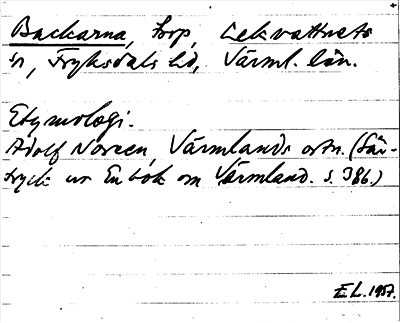 Backarna, torp, Lekvattnets
sn, Fryksdals hd, Värml. län.
Etymologi.
Adolf Noreen, Värmlands ortn. (Sär-
tryck ur En bok om Värmland. s. 386.)
E L. 1957.